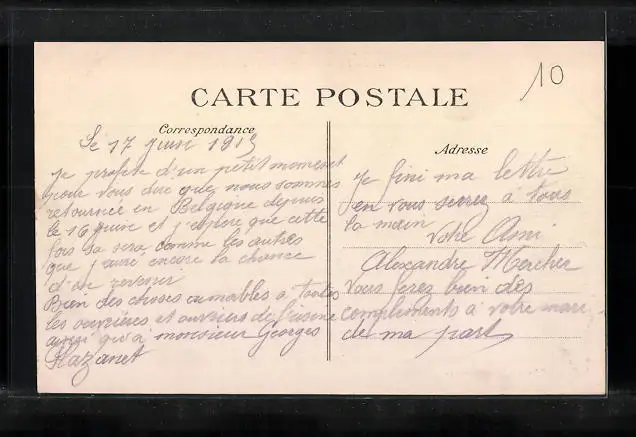 10
CARTE POSTALE
Correspondance
Le 17 juin 1915
je profite d'un petit moment
pour vous dire que nous sommes
retournée en Belgique depuis
le 16 juin et j'espère que cette
fois sa sera comme les autres
que j'aurai encore la chance
d'en revenir
Bien des choses aimables à toutes
les ouvrières et ouvriers de l'usine
ainsi qu'à monsieur Georges
Hazanet
Adresse
je fini ma lettre
en vous serre à tous
la main
Votre Ami
Alexandre Mercher
Vous ferez bien dès
compliments à votre mari
de ma part